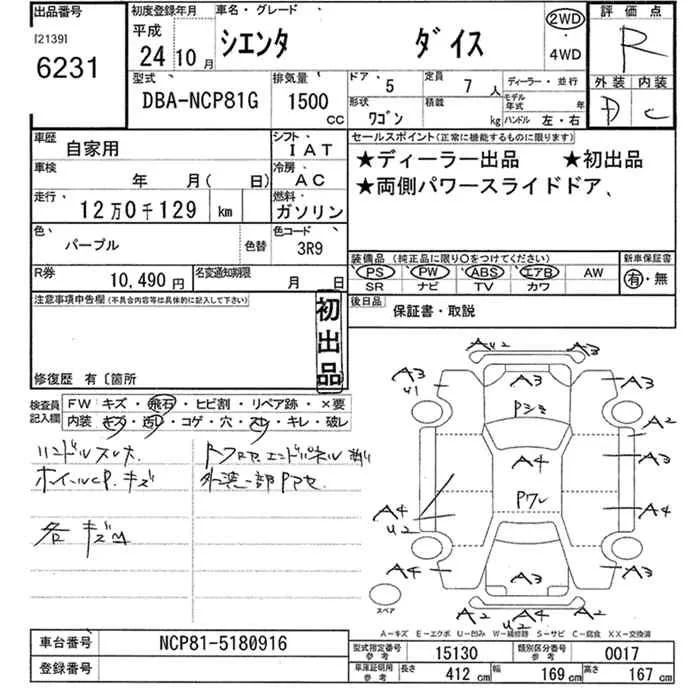 出品番号
[2139]
6231
初度登録年月
平成
24年10月
車名・グレード
シエンタ ダイス
2WD
・
4WD
評価点
R
型式
DBA-NCP81G
排気量
1500
CC
ドア・ 5
定員 7 人
ディーラー・並行
形状 ワゴン
積載 kg
モデル年式 年
ハンドル 左・右
外装 内装
D C
車歴
自家用
シフト・
I AT
車検
年 月( 日)
冷房・
AC
走行・
12万0千129 km
燃料・
ガソリン
色・
パープル
色替
色コード・
3R9
R券
10,490 円
名変通知期限
月 日
セールスポイント(正常に機能するものに限ります)
★ディーラー出品 ★初出品
★両側パワースライドドア、
装備品(純正品に限り○をつけてください)
PS PW ABS エアB AW
SR ナビ TV カワ
新車保証書
有・無
後日品
保証書・取説
注意事項申告欄(不具合内容等は具体的に記入して下さい)
初出品
修復歴 有〔箇所
検査員記入欄
FW キズ・飛石・ヒビ割・リペア跡・×要
内装 キズ・汚レ・コゲ・穴・スレ・キレ・破レ
ハンドルスレ大
ホイールCP.キズ
各キズ凹
外装一部PアセA
A3
U1
A4
U2
A3
Pシミ
A4
Pワレ
A3
A3
A2
A3
A4
A4
A4
A2
U2
A2
スペア
A−キズ E−エクボ U−凹み W−補修跡 S−サビ C−腐食 XX−交換済
車台番号
NCP81-5180916
登録番号
型式指定番号
参考
15130
類別区分番号
参考
0017
車庫証明用
参考
長さ 412 cm
幅 169 cm
高さ 167 cm